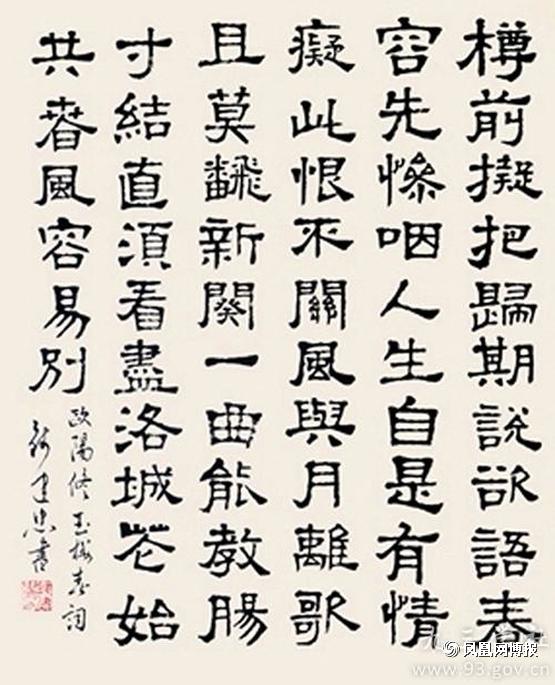 樽前擬把歸期說欲語春
容先慘咽人生自是有情
癡此恨不關風與月離歌
且莫飜新闋一曲能教腸
寸結直須看盡洛城花始
共春風容易別
歐陽修玉樓春詞
建忠書
九三学社
凤凰网博报
www.93.gov.cn